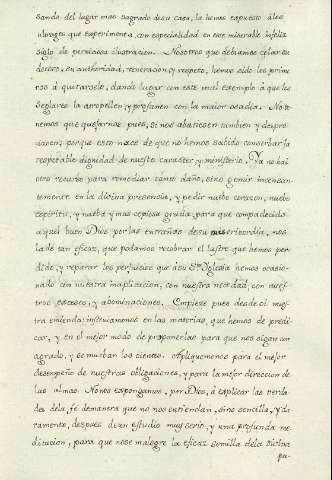 sando del lugar mas sagrado desu casa, la hemos expuesto álos
ultrages que experimenta, con especialidad en este miserable infeliz
siglo de perniciosa ilustracion. Nosotros que debiamos celar su
decoro, su authoridad, veneracion y respeto, hemos sido los prime
ros á quitarselo, dando lugar con este mal exemplo á que los
Seglares la atropellen, y profanen con la maior osadia. No te
nemos que quejarnos pues, si nos abatiesen tambien y despre
ciasen; porque esto nace de que no hemos sabido conservar la
respetable dignidad de nuestro caracter y ministerio. Ya no hai
otro recurso para remediar tanto daño, sino gemir incesan
temente en la divina presencia, y pedir nuebo corazon, nuebo
espiritu, y nueba y mas copiosa gracia, para que compadecido
aquel buen Dios por las entrañas desu misericordia, nos
la dé tan eficaz, que podamos recobrar el lustre que hemos per
dido, y reparar los perjuicios que asu Sta Yglesia hemos ocasio
nado con nuestra inaplicacion, con nuestra necedad, con nues
tros excesos, y abominaciones. Empiese pues desde oi nues
tra emienda: instruiamonos en las materias, que hemos de predi
car, y en el mejor modo de proponerlas para que nos oigan con
agrado, y se muevan los oientes. Apliquemonos para el mejor
desempeño de nuestras obligaciones, y para la mejor direccion de
las almas. Nonos expongamos, por Dios, á explicar las verda
des dela fé demanera que no nos entiendan, sino sencilla, y cla
ramente, despues de un estudio mui serio, y una profunda me
ditacion, para que nose malogre la eficaz semilla dela Divina
pa-